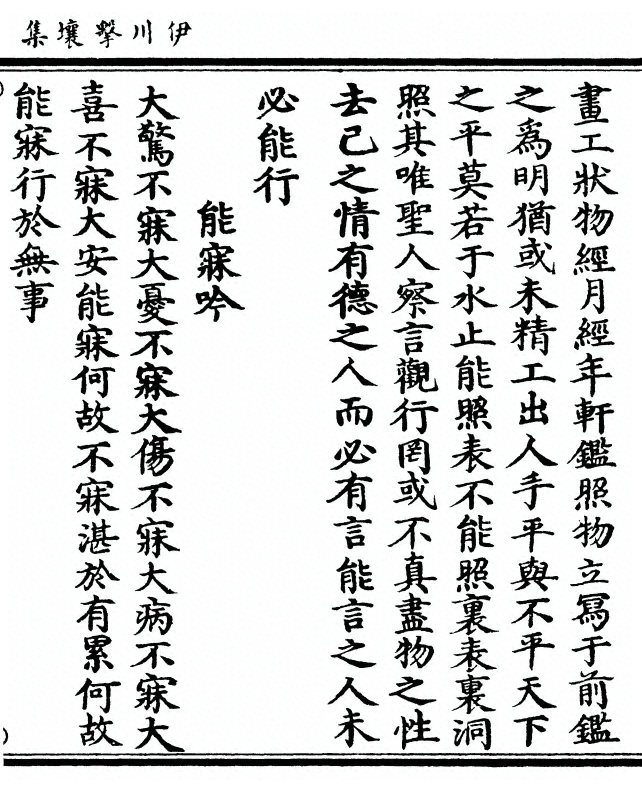 伊川擊壤集
畫工狀物經月經年軒鑑照物立寫于前鑑
之爲明猶或未精工出人手平與不平天下
之平莫若于水止能照表不能照裏表裏洞
照其唯聖人察言觀行罔或不真盡物之性
去己之情有德之人而必有言能言之人未
必能行
能寐吟
大驚不寐大憂不寐大傷不寐大病不寐大
喜不寐大安能寐何故不寐湛於有累何故
能寐行於無事